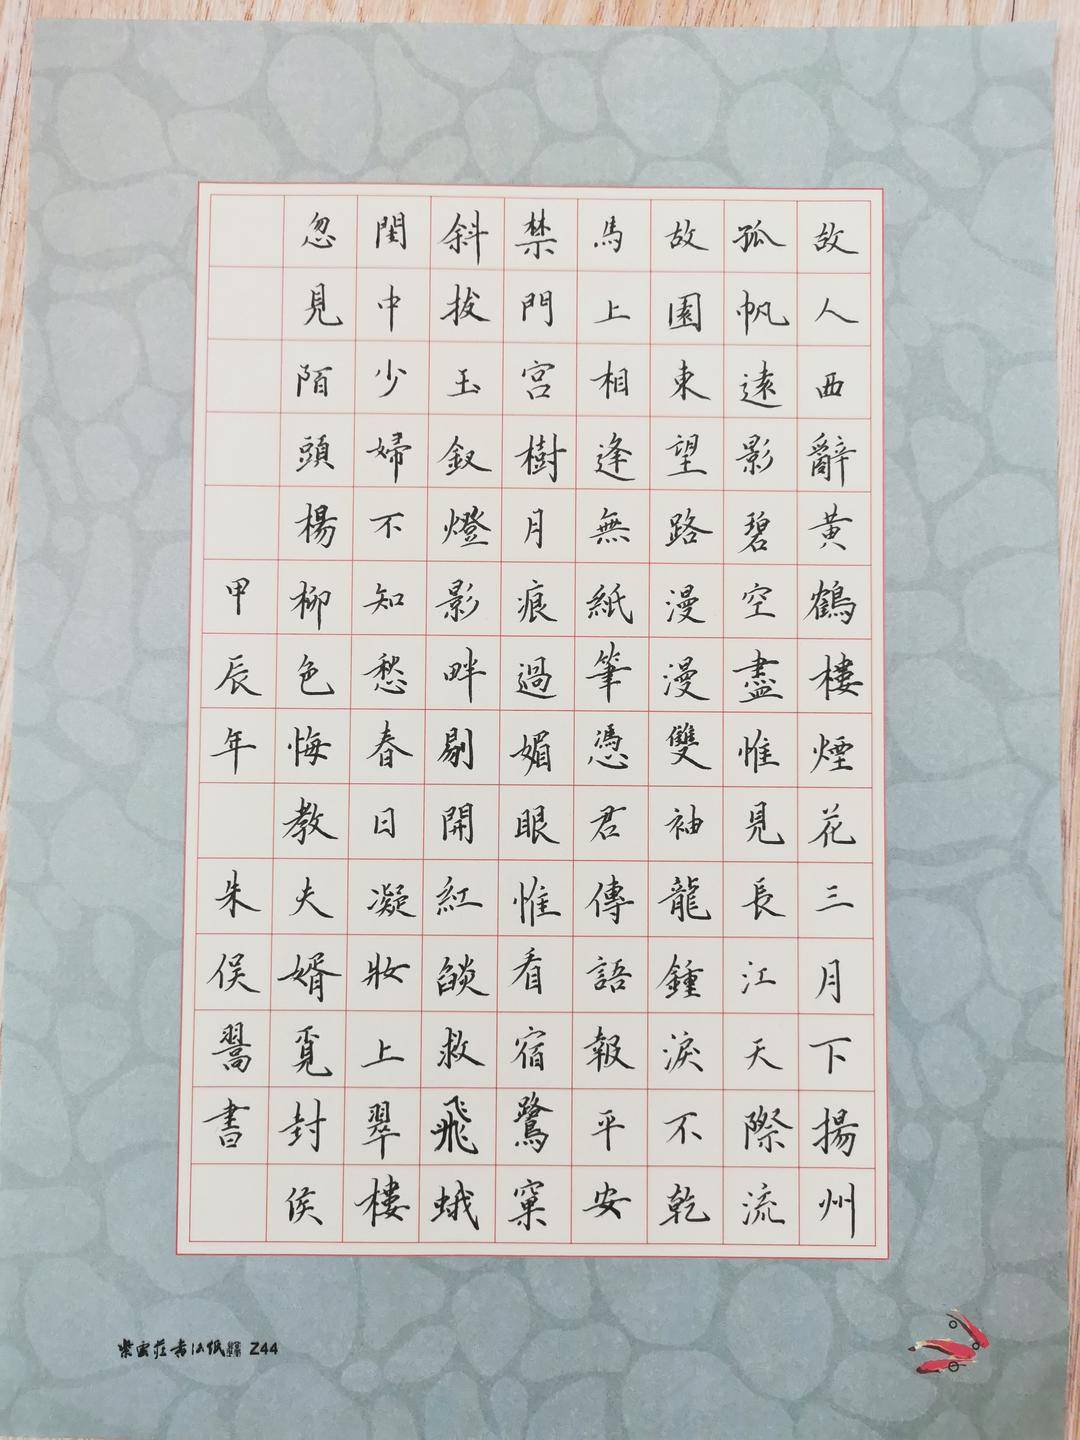 故人西辭黃鶴樓煙花三月下揚州
孤帆遠影碧空盡惟見長江天際流
故園東望路漫漫雙袖龍鍾淚不乾
馬上相逢無紙筆憑君傳語報平安
禁門宮樹月痕過媚眼惟看宿鷺窠
斜拔玉釵燈影畔剔開紅燄救飛蛾
閨中少婦不知愁春日凝妝上翠樓
忽見陌頭楊柳色悔教夫婿覓封侯
甲辰年 朱俁翯書
紫雲莊書法紙 Z44